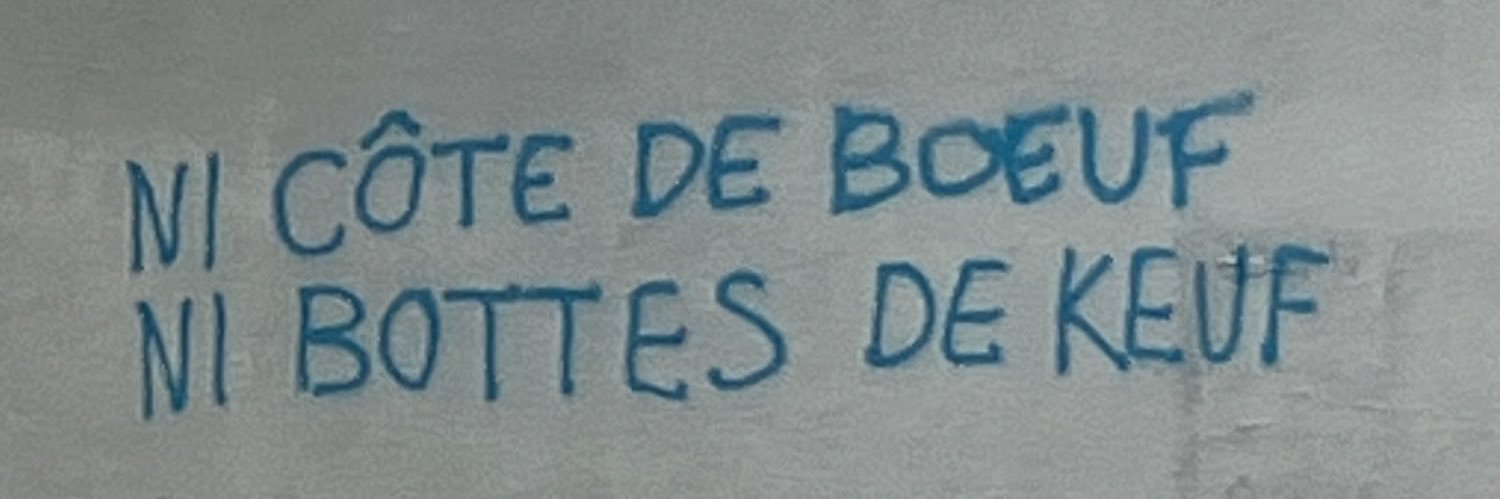 NI CÔTE DE BOEUF
NI BOTTES DE KEUF